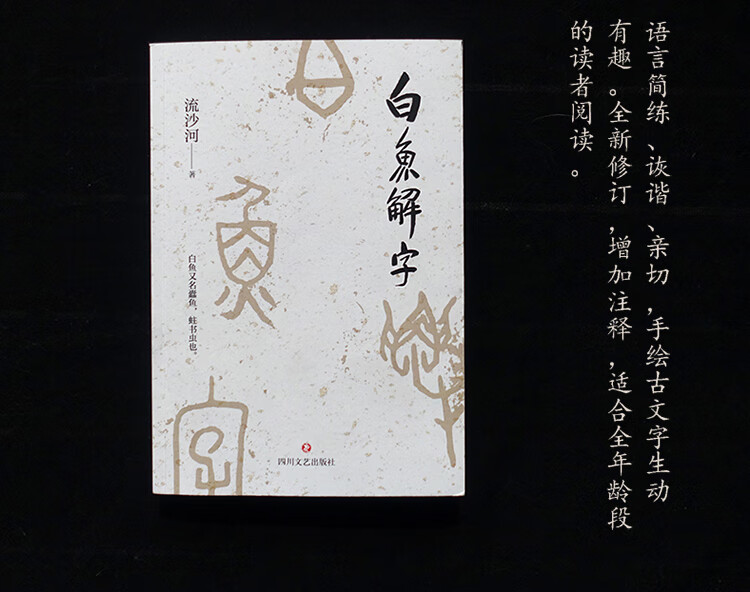 语言简练、诙谐、亲切,手绘古文字生动
有趣。全新修订,增加注释,适合全年龄段
的读者阅读。
白魚解字
流沙河——著
白鱼又名蠹鱼,蛀书虫也。
四川文艺出版社